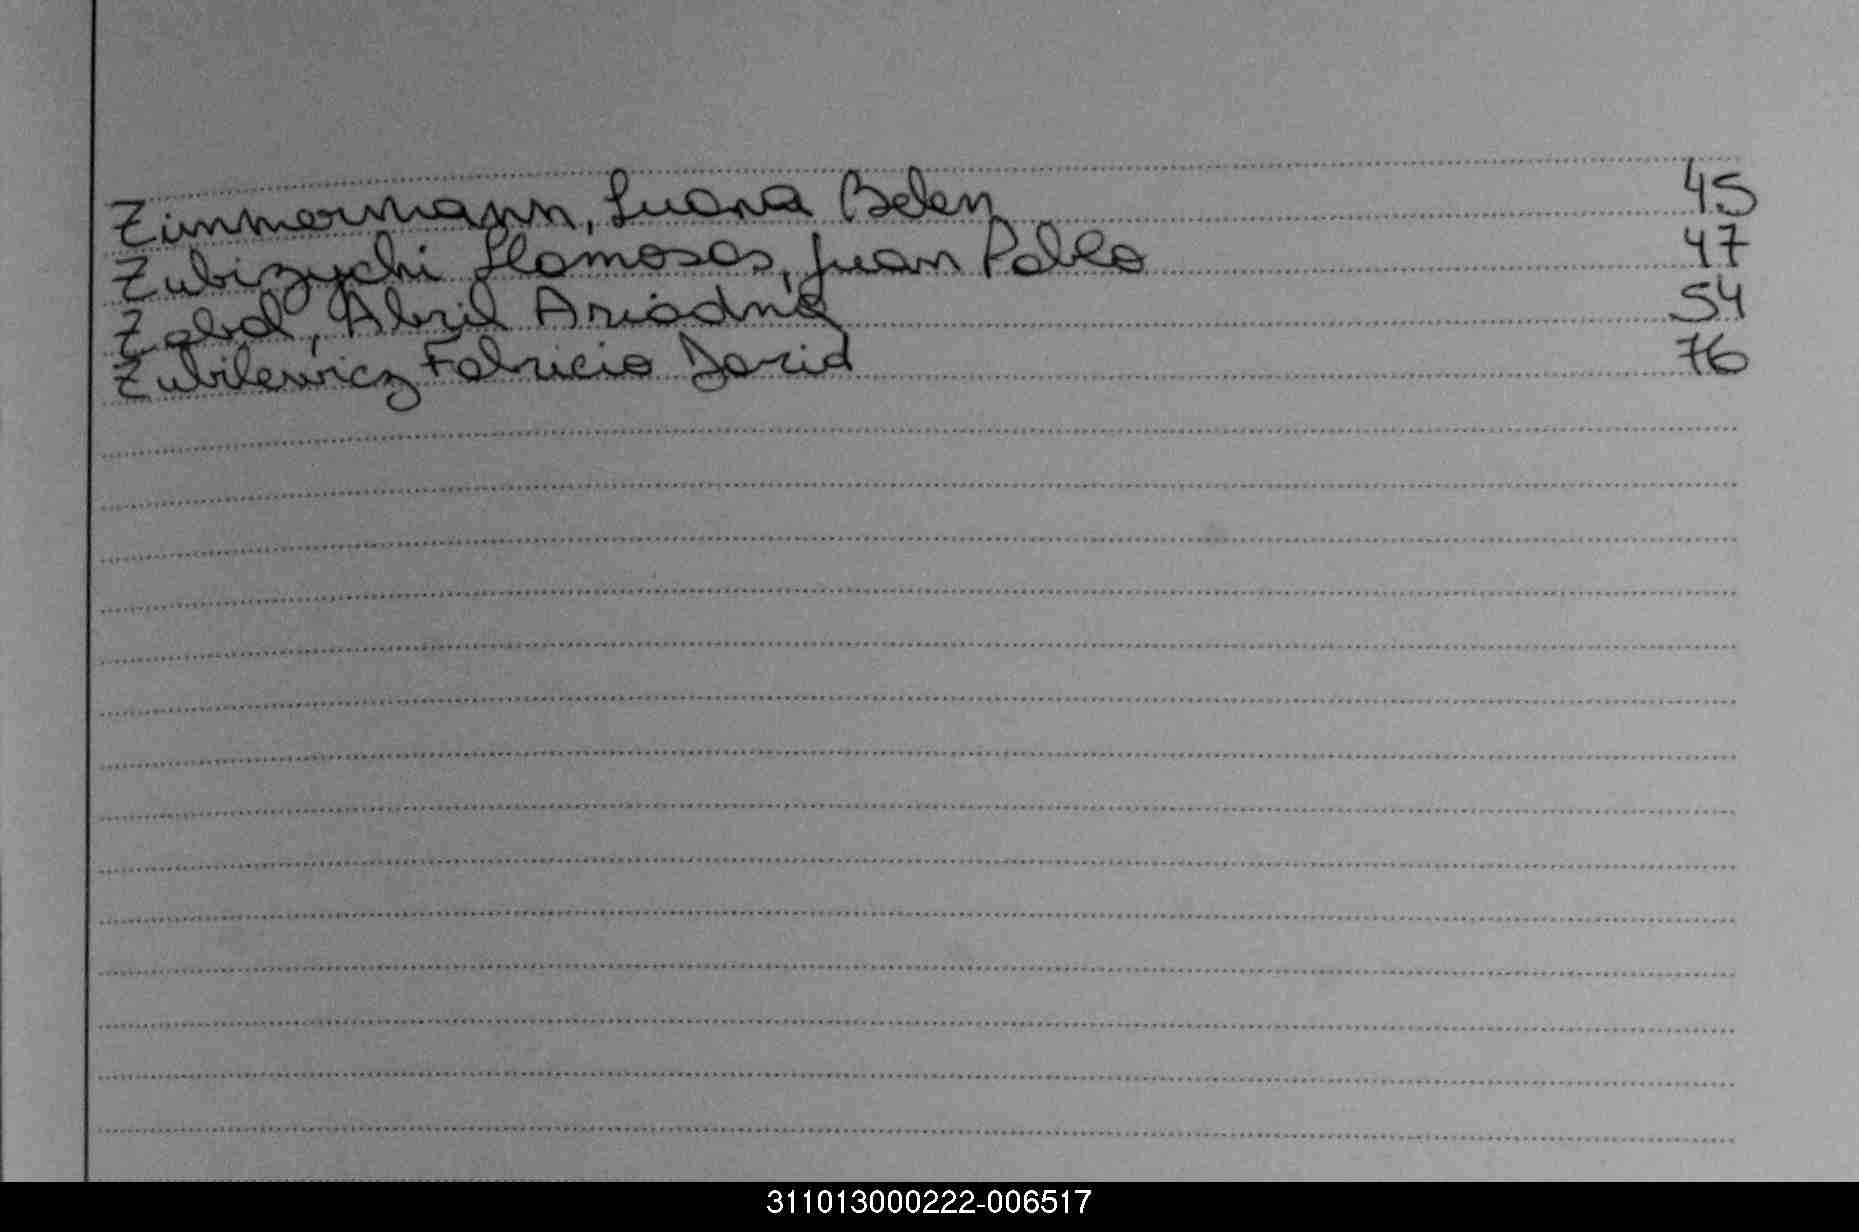 Zimmermann, Luana Belen 45
Zubizychi Llamosas, Juan Pablo 47
Zabal, Abril Ariadna 54
Zubilewicz Fabricio David 76
311013000222-006517